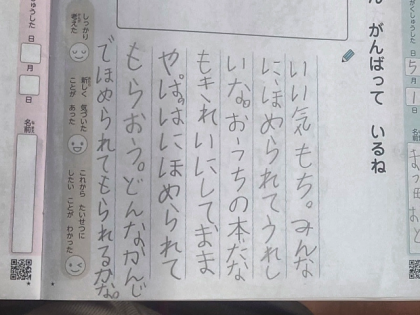 ん がんばって いるね
5月1日
いい気もち。みんな
に、ほめられてうれし
いな。おうちの本だな
もきれいにしてまま
やぱぱにほめられて
もらおう。どんなかんじ
でほめられてもられるかな。
しっかり
考えた
新しく 気づいた
ことが あった
これから たいせつに
したい ことが わかった
がくしゅうした 日
月
日
名前